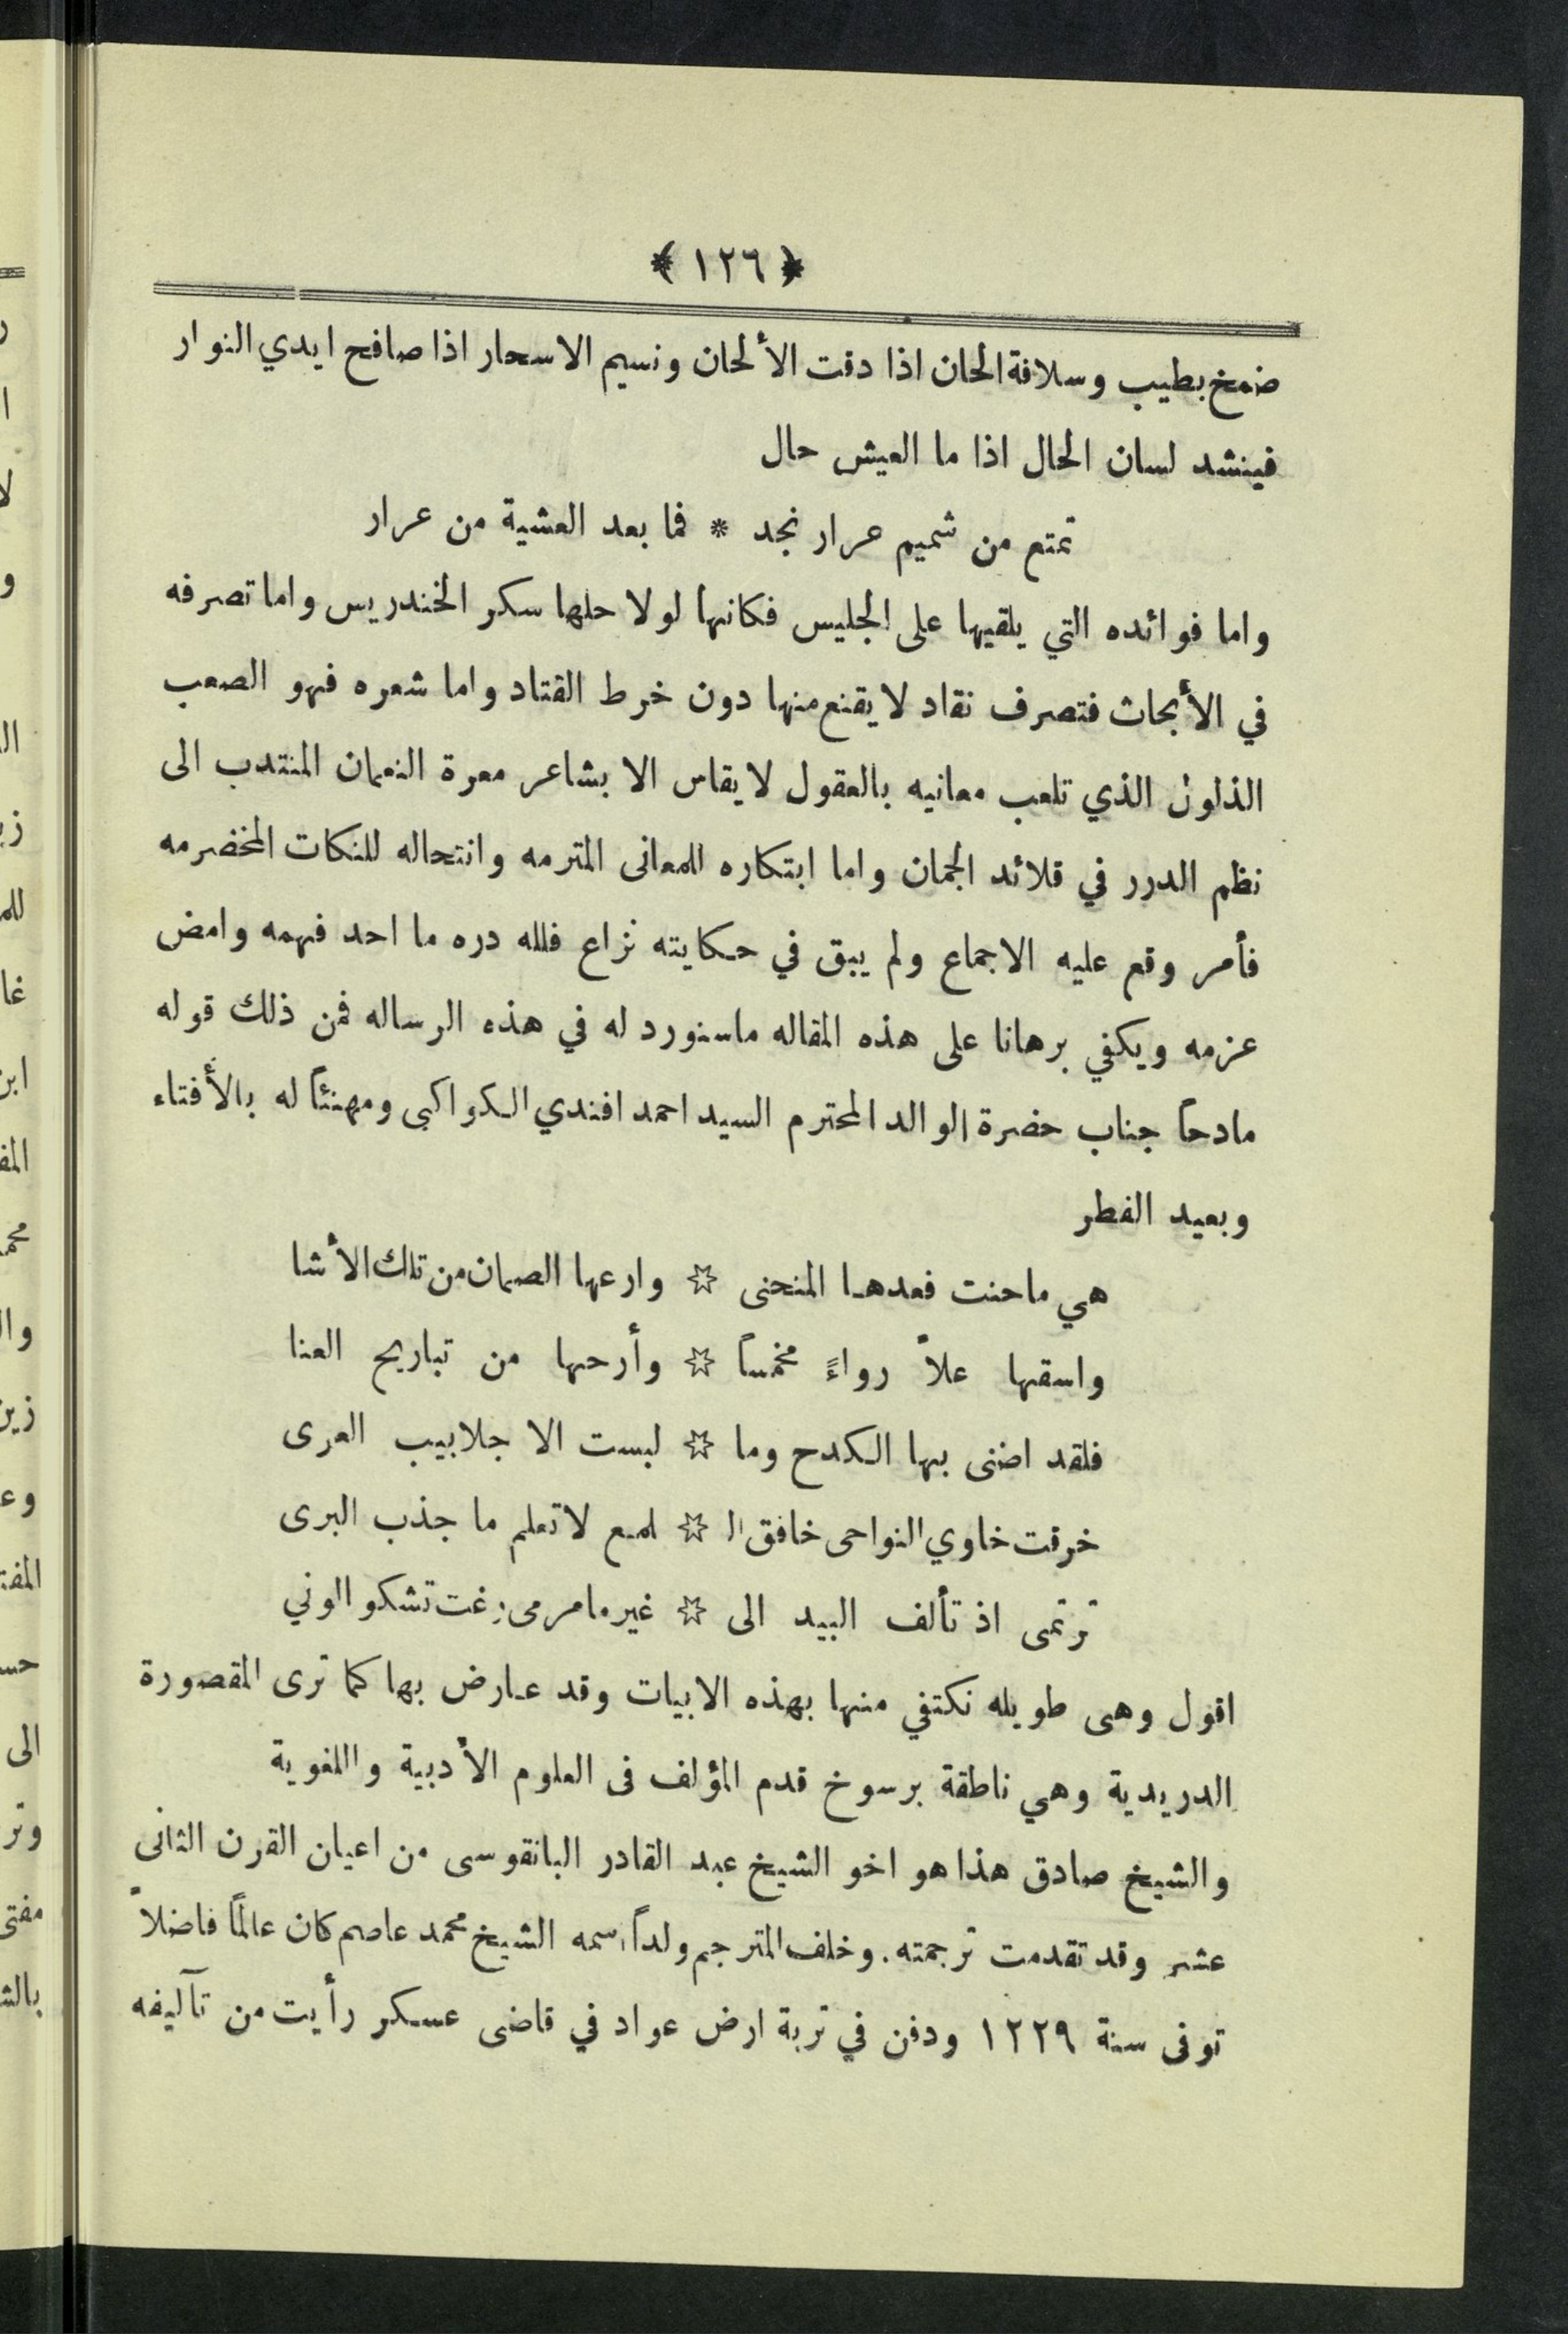 ﴿ ١٢٦ ﴾
ضمخ بطيب وسلافة الحان اذا دقت الألحان ونسيم الاسحار اذا صافح ايدي النوار
فينشد لسان الحال اذا ما العيش حال
تمتع من شميم عرار نجد * فما بعد العشية من عرار
واما فوائده التي يلقيها على الجليس فكانها لولا حلها سكر الخندريس واما تصرفه
في الأبحاث فتصرف نقاد لا يقنع منها دون خرط القتاد واما شعره فهو الصعب
الذلول الذي تلعب معانيه بالعقول لا يقاس الا بشاعر معرة النعمان المنتدب الى
نظم الدرر في قلائد الجمان واما ابتكاره للمعانى المترمه وانتحاله للنكات المخضرمه
فأمر وقع عليه الاجماع ولم يبق في حكايته نزاع فلله دره ما احد فهمه وامض
عزمه ويكفي برهانا على هذه المقاله ماسنورد له في هذه الرساله فمن ذلك قوله
مادحاً جناب حضرة الوالد المحترم السيد احمد افندي الكواكبى ومهنئاً له بالأفتاء
وبعيد الفطر
هي ماحنت فعدها المنحنى ☆ وارعها الصمان من تلك الأشا
واسقها علاً رواءً مخمساً ☆ وأرحها من تباريح العنا
فلقد اضنى بها الكدح وما ☆ لبست الا جلابيب العرى
خرقت خاوي النواحى خافق ال ☆ لمع لا تعلم ما جذب البرى
ترتمى اذ تألف البيد الى ☆ غير مامرمى رغت تشكو الوني
اقول وهى طويله نكتفي منها بهذه الابيات وقد عارض بها كما ترى المقصورة
الدريدية وهي ناطقة برسوخ قدم المؤلف فى العلوم الأدبية واللغوية
والشيخ صادق هذا هو اخو الشيخ عبد القادر البانقوسى من اعيان القرن الثانى
عشر وقد تقدمت ترجمته . وخلف المترجم ولداً اسمه الشيخ محمد عاصم كان عالماً فاضلاً
توفى سنة ١٢٢٩ ودفن في تربة ارض عواد في قاضى عسكر رأيت من تآليفه